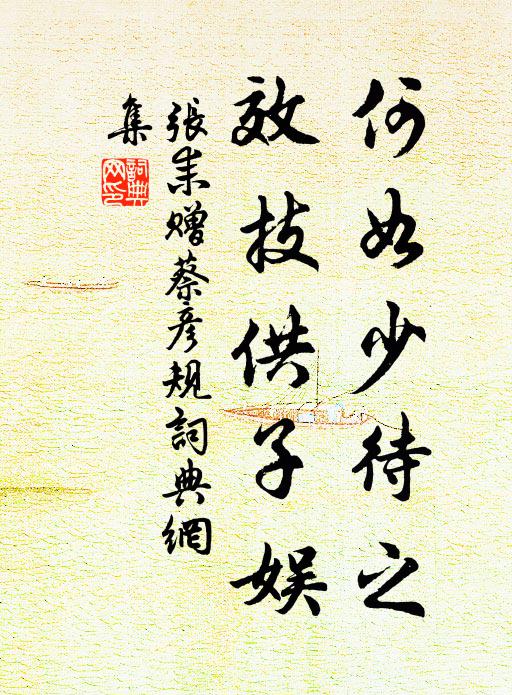 何如少待之
效技供子娱
張耒贈蔡彦規詞典網
集
詞典
网印